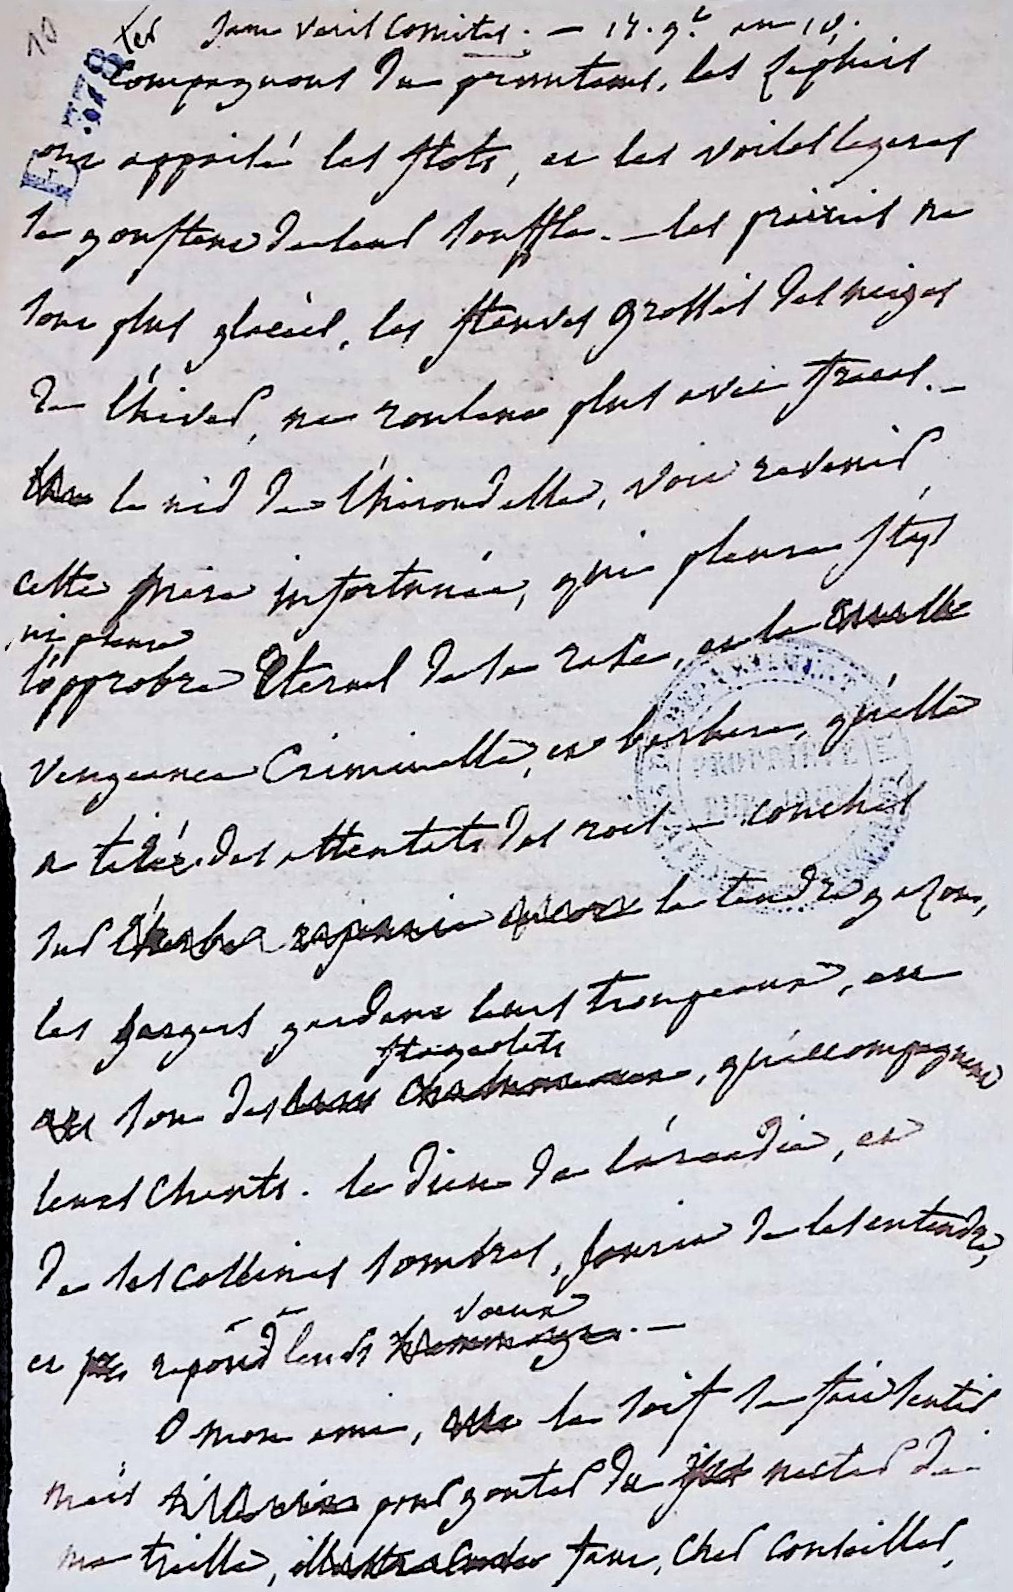 10 Ter Jam Veris Comites. — 14. 9.e an 10.
E.378
Compagnons du printems, les zéphirs
ont appaisé les flots, et les voiles legeres
se gonflent de leur souffle. — les prairies ne
sont plus glacées, les fleuves grossis des neiges
de l'hiver, ne roulent plus avec fracas. —
le nid de l'hirondelle, voit revenir
cette mere infortunée, qui pleure Itys
ni pleure
l'opprobre Eternel de sa race, et la cruelle
vengeance Criminelle, et barbare, qu'elle
a tirée des attentats des rois — couchés
sur l'herbe rajeunie encore le tendre gazon,
les bergers gardent leurs troupeaux, au
flageolets
son des leurs chalumeaux, qu'accompagnent
leurs Chants. le dieu de l'arcadie, et
de ses collines sombres, sourit de les entendre,
voeux
et repond leurs hommages. —
O mon ami, la soif se fait sentir
mais pour gouter du jus nectar de
ma treille, il faut, cher conseiller,
PROPRIÉTÉ